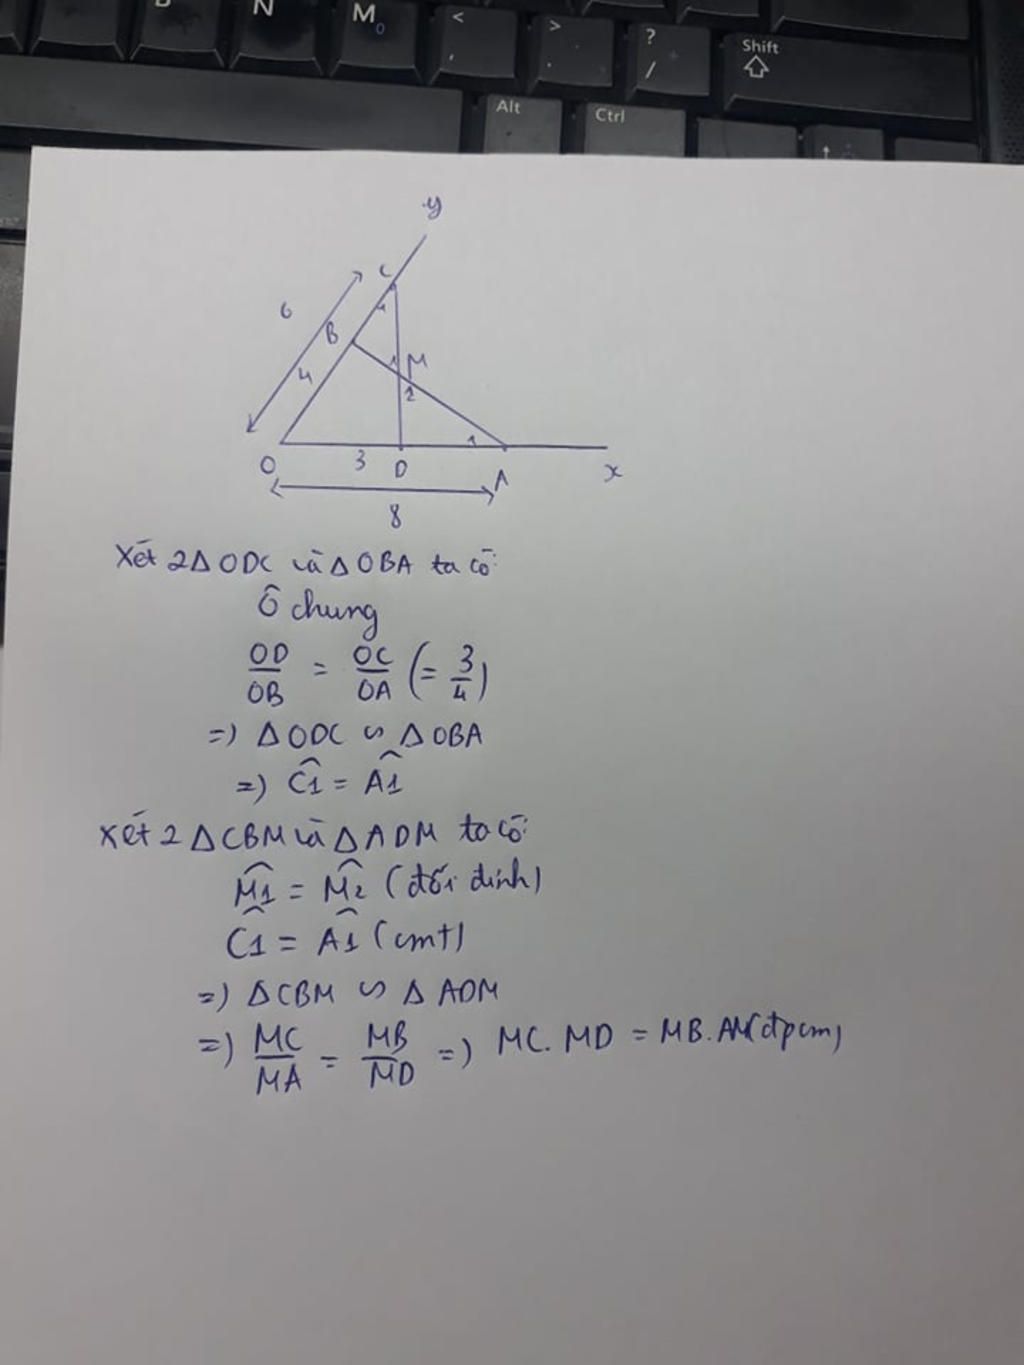 N
M
<
>
?
/
Shift
Alt
Ctrl
y
C
1
6
B
1
M
4
2
1
O
3
D
A
x
8
Xét 2Δ ODC và Δ OBA ta có:
Ô chung
OD/OB = OC/OA (= 3/4)
=) Δ ODC ∽ Δ OBA
=) Ĉ1 = Â1
Xét 2 Δ CBM và Δ ADM ta có:
M̂1 = M̂2 (đối đỉnh)
Ĉ1 = Â1 (cmt)
=) Δ CBM ∽ Δ ADM
=) MC/MA = MB/MD =) MC. MD = MB. AM (đpcm)